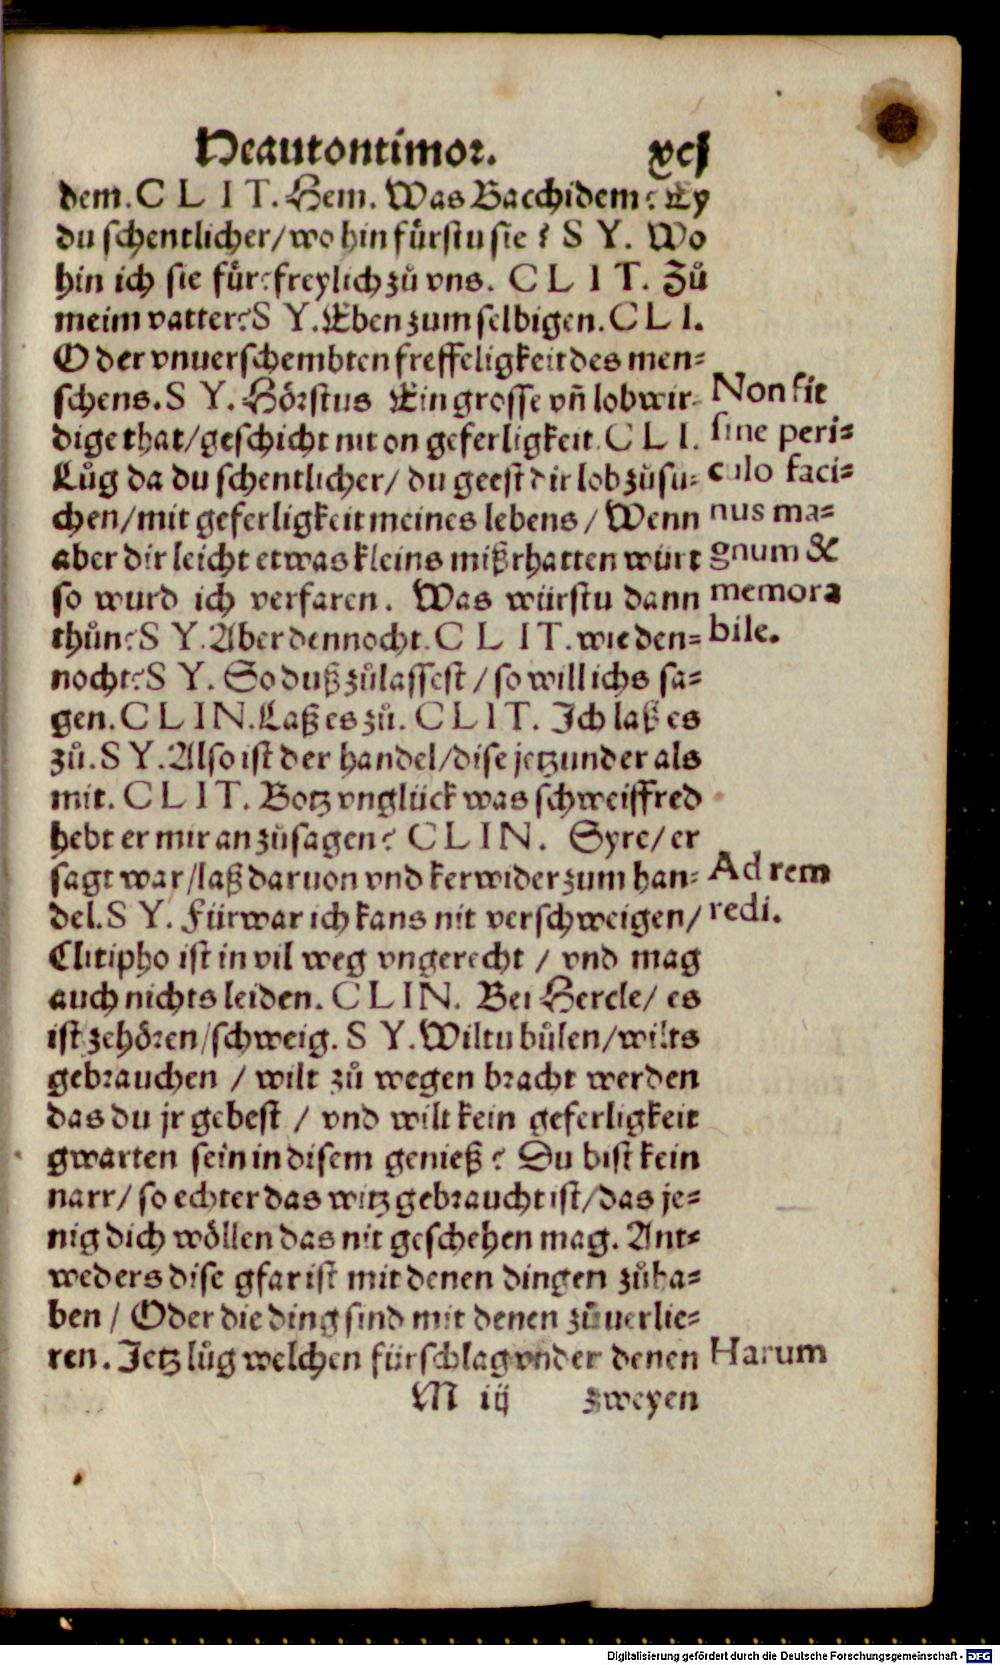 Heautontimor. xcj
dem. CLIT. Hem. Was Bacchidem? Ey
du schentlicher/ wo hin fürstu sie? SY. Wo
hin ich sie für? freylich zů vns. CLIT. Zů
meim vatter? SY. Eben zum selbigen. CLI.
O der vnuerschembten freffeligkeit des men-
schens. SY. Hörstus Ein grosse vñ lobwir-
dige that/ geschicht nit on geferligkeit. CLI.
Lůg da du schentlicher/ du geest dir lob zůsu-
chen/ mit geferligkeit meines lebens/ Wenn
aber dir leicht etwas kleins mißrhatten würt
so wurd ich verfaren. Was würstu dann
thůn? SY. Aber dennocht. CLIT. wie den-
nocht? SY. So duß zůlassest/ so will ichs sa-
gen. CLIN. Laß es zů. CLIT. Ich laß es
zů. SY. Also ist der handel/ dise jetzunder als
mit. CLIT. Botz vnglück was schweiffred
hebt er mir an zůsagen? CLIN. Syre/ er
sagt war/ laß daruon vnd ker wider zum han-
del. SY. Fürwar ich kans nit verschweigen/
Clitipho ist in vil weg vngerecht/ vnd mag
auch nichts leiden. CLIN. Bei Hercle/ es
ist zehören/ schweig. SY. Wiltu bůlen/ wilts
gebrauchen/ wilt zů wegen bracht werden
das du jr gebest/ vnd wilt kein geferligkeit
gwarten sein in disem genieß? Du bist kein
narr/ so echter das witz gebraucht ist/ das je-
nig dich wöllen das nit geschehen mag. Ant-
weders dise gfar ist mit denen dingen zůha-
ben/ Oder die ding sind mit denen zůuerlie-
ren. Jetz lůg welchen fürschlag vnder denen
M iij zweyen
Non fit
sine peri-
culo faci-
nus ma-
gnum &
memora
bile.
Ad rem
redi.
Harum
Digitalisierung gefördert durch die Deutsche Forschungsgemeinschaft - DFG